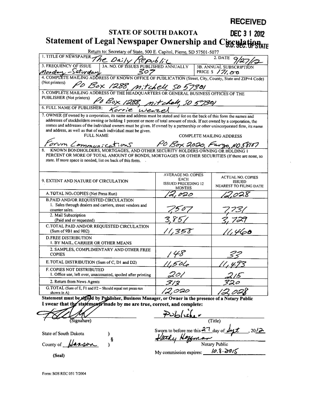 RECEIVED
DEC 31 2012
U.S. SEC. OF STATE
STATE OF SOUTH DAKOTA
Statement of Legal Newspaper Ownership and Circulation
Return to: Secretary of State, 500 E. Capitol, Pierre, SD 57501-5077
1. TITLE OF NEWSPAPER The Daily Republic
2. DATE 9/27/12
3. FREQUENCY OF ISSUE Monday - Saturday
3A. NO. OF ISSUES PUBLISHED ANNUALLY 307
3B. ANNUAL SUBSCRIPTION PRICE $
4. COMPLETE MAILING ADDRESS OF KNOWN OFFICE OF PUBLICATION (Street, City, County, State and ZIP+4 Code) (Not printers)
PO Box 1288, Mitchell SD 57301
5. COMPLETE MAILING ADDRESS OF THE HEADQUARTERS OR GENERAL BUSINESS OFFICES OF THE PUBLISHER (Not printers)
PO Box 1288, Mitchell SD 57301
6. FULL NAME OF PUBLISHER: Korrie Wenzel
7. OWNER (If owned by a corporation, its name and address must be stated and list on the back of this form the names and addresses of stockholders owning or holding 1 percent or more of total amount of stock. If not owned by a corporation, the names and addresses of the individual owners must be given. If owned by a partnership or other unincorporated firm, its name and address, as well as that of each individual must be given.
FULL NAME COMPLETE MAILING ADDRESS
Forum Communications PO Box 2020, Fargo, ND 58107
8. KNOWN BONDHOLDERS, MORTGAGES, AND OTHER SECURITY HOLDERS OWNING OR HOLDING 1 PERCENT OR MORE OF TOTAL AMOUNT OF BONDS, MORTGAGES OR OTHER SECURITIES (If there are none, so state. If more space is needed, list on back of this form.
9. EXTENT AND NATURE OF CIRCULATION
AVERAGE NO. COPIES EACH ISSUED PRECEDING 12 MONTHS
ACTUAL NO. COPIES ISSUED NEAREST TO FILING DATE
A. TOTAL NO. COPIES (Net Press Run) 12,020 12,028
B. PAID AND/OR REQUESTED CIRCULATION
1. Sales through dealers and carriers, street vendors and counter sales. 7507 7731
2. Mail Subscription (Paid and or requested) 3,851 3,729
C. TOTAL PAID AND/OR REQUESTED CIRCULATION (Sum of 9B1 and 9B2) 11,358 11,460
D. FREE DISTRIBUTION
1. BY MAIL, CARRIER OR OTHER MEANS
2. SAMPLES, COMPLIMENTARY AND OTHER FREE COPIES 148 33
E. TOTAL DISTRIBUTION (Sum of C, D1 and D2) 11,506 11,493
F. COPIES NOT DISTRIBUTED
1. Office use, left over, unaccounted, spoiled after printing 201 215
2. Return from News Agents 313 320
G. TOTAL (Sum of E, F1 and F2 - Should equal net press run shown in A) 12,020 12,028
Statement must be signed by Publisher, Business Manager, or Owner in the presence of a Notary Public
I swear that the statements made by me are true, correct, and complete:
Publisher
(Signature) (Title)
State of South Dakota )
§
County of Hanson )
Sworn to before me this 27 day of Sept, 2012
Notary Public
(Seal)
My commission expires: